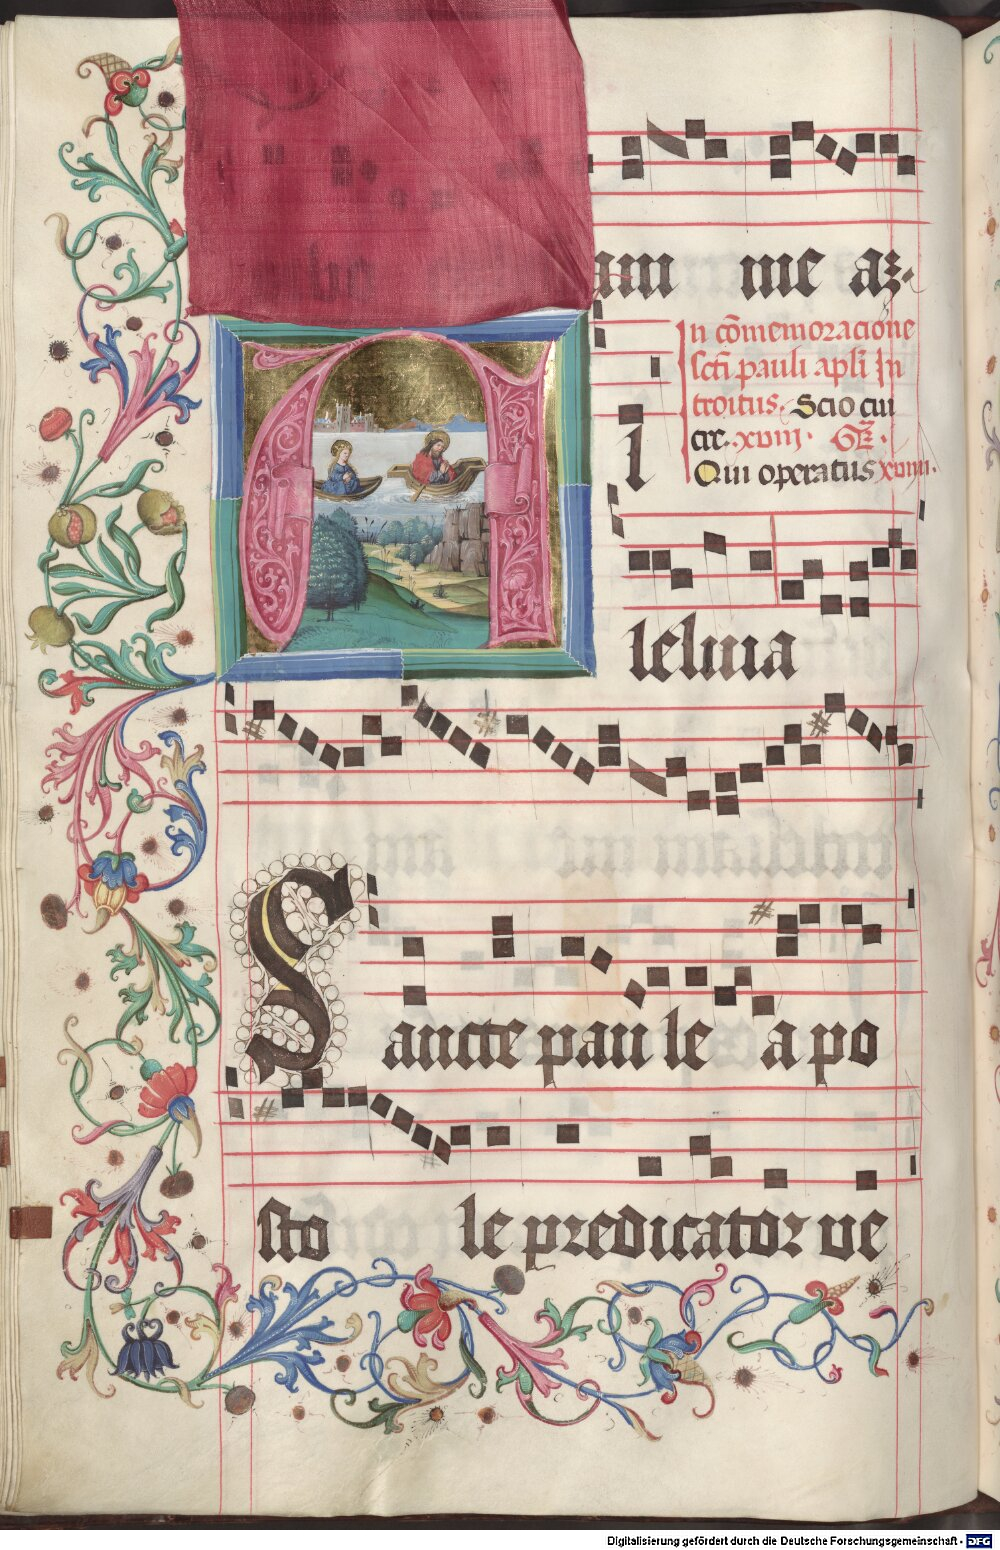 am me az.
In cōmemoracione
scti pauli apli In
troitus. Scio cui
cre. xviii. Gr.
Qui operatus xviiii.
A l
leluia
Sancte pau le a po
sto le predicator ve
Digitalisierung gefördert durch die Deutsche Forschungsgemeinschaft - DFG